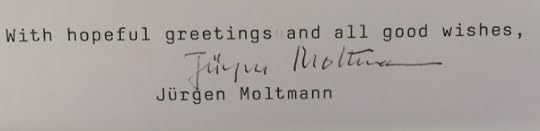 With hopeful greetings and all good wishes,
Jürgen Moltmann
Jürgen Moltmann